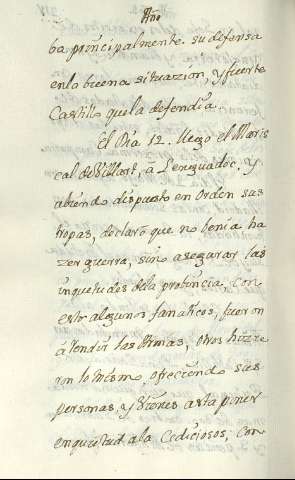 Año
ba principalmente su defensa
en la buena situazion, y fuerte
Castillo que la defendia.
El Dia 12. llego el Maris
cal de Villars, à Lenguadoc, y
abiendo dispuesto en orden sus
tropas, declarò que no benia ha
zer guerra, sino asegurar las
inquietudes de la probincia, con
esto algunos fanaticos, fueron
à rendir las Armas, otros hizie
ron lo mismo, ofreciendo sus
personas, y Vienes asta poner
en quietud a la Cediciosos, con